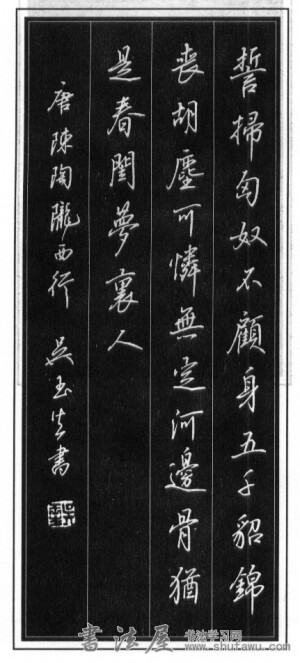 誓掃匈奴不顧身五千貂錦
喪胡塵可憐無定河邊骨猶
是春閨夢裏人
唐陳陶隴西行 吳玉生書
書法屋
书法学习网
www.shutawu.com